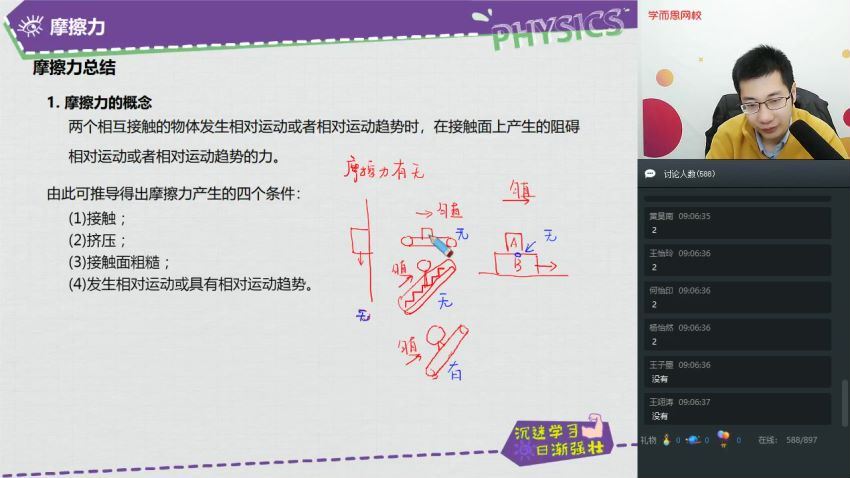 摩擦力
PHYSICS
摩擦力总结
1. 摩擦力的概念
两个相互接触的物体发生相对运动或者相对运动趋势时，在接触面上产生的阻碍
相对运动或者相对运动趋势的力。
摩擦力有无
由此可推导得出摩擦力产生的四个条件：
(1)接触；
(2)挤压；
(3)接触面粗糙；
(4)发生相对运动或具有相对运动趋势。
无
匀直
无
匀直
无
匀直
有
匀直
A
B
无
沉迷学习
日渐强壮
学而思网校
讨论人数(588)
黄昊南 09:06:35
2
王怡玲 09:06:36
2
何怡印 09:06:36
2
杨怡然 09:06:36
2
王子墨 09:06:36
没有
王翊涛 09:06:37
没有
礼物 0 0 0 在线： 588/897